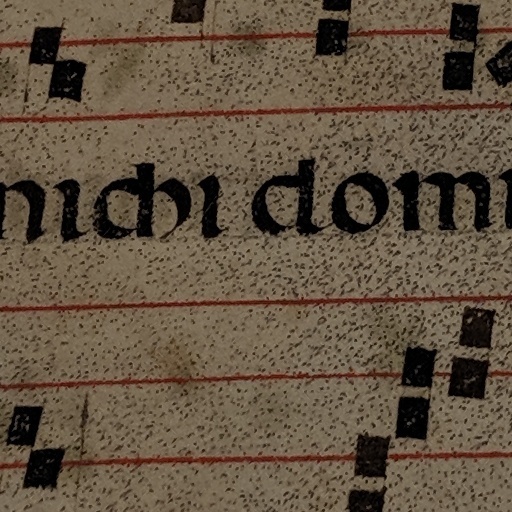 michi domi